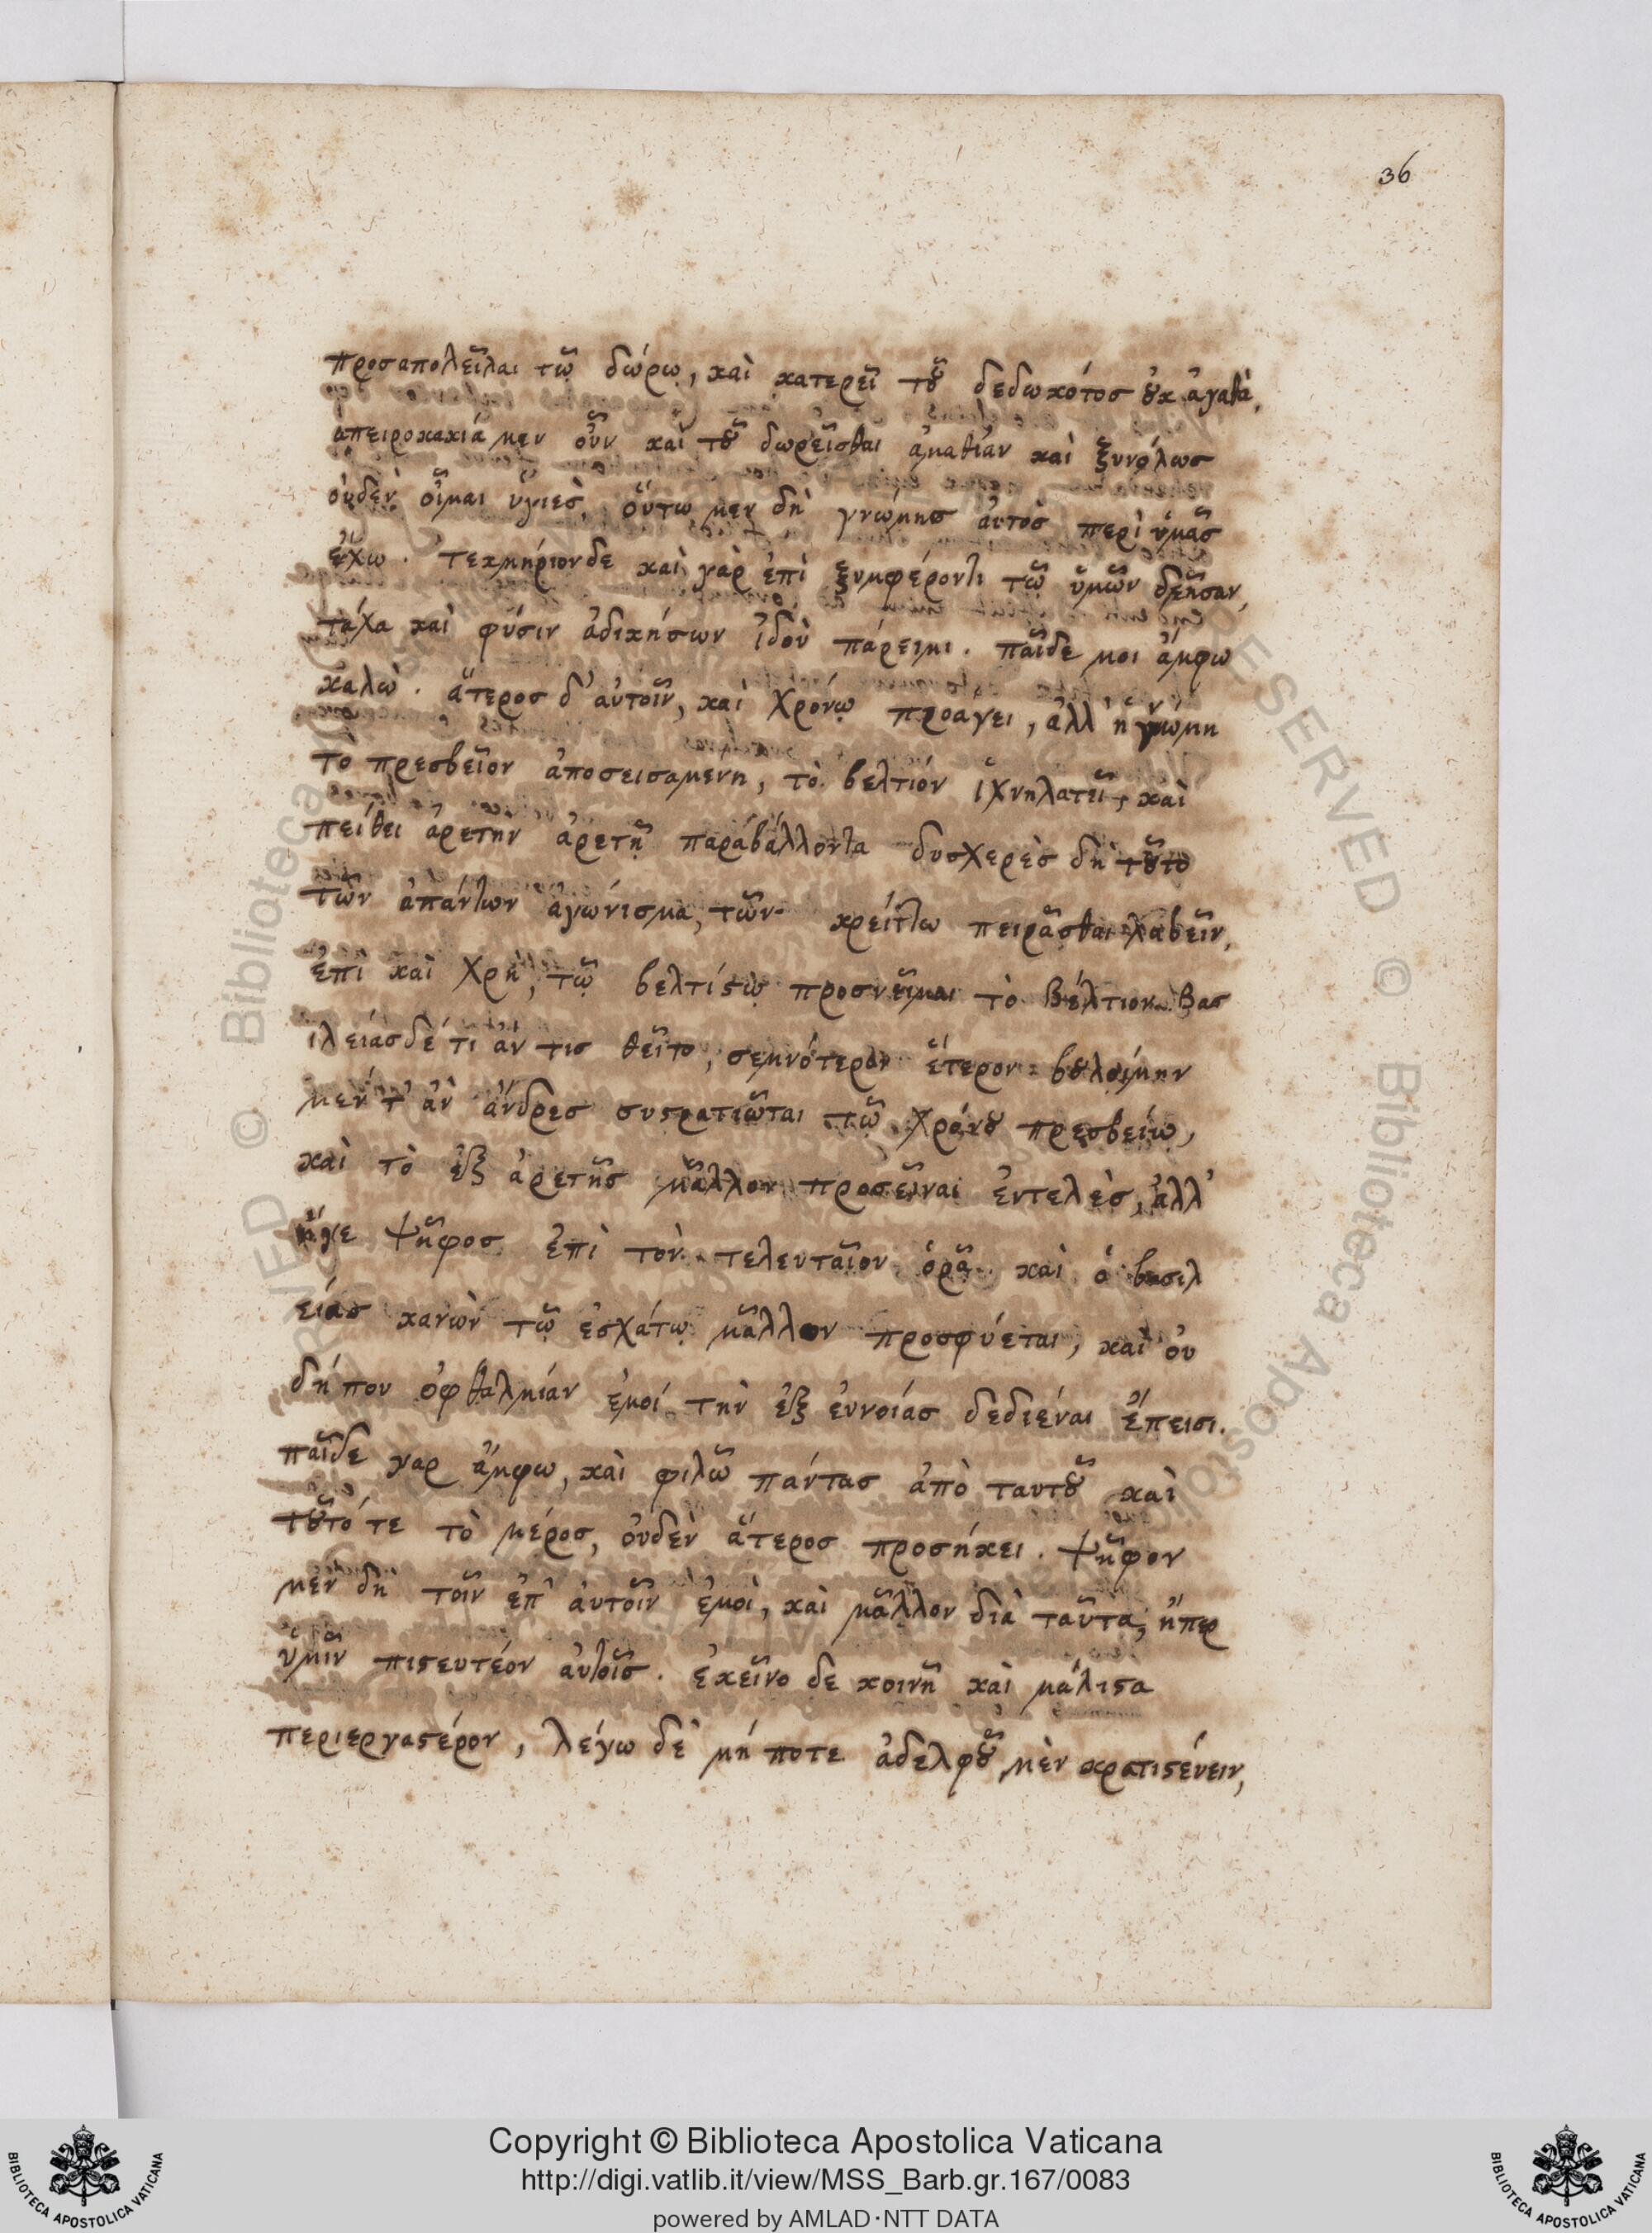 36
προσαπολεῖλαι τῷ δώρῳ, καὶ κατερεῖ τοῦ δεδωκότος οὐκ ἀγαθὰ,
ἀπειροκακιά μεν οὖν καὶ τοῦ δωρεῖσθαι ἀμαθίαν καὶ ξυνόλως
οὐδὲν οἶμαι ὑγιὲς, οὕτω μεν δὴ γνώμης αὐτὸς περὶ ὑμᾶς
ἔχω. τεκμήριονδε καὶ γὰρ ἐπὶ ξυμφέροντι τῷ ὑμῶν δεῆσαν,
τάχα καὶ φύσιν ἀδικήσων ἰδοὺ πάρειμι. παῖδε μοι ἄμφω
καλὼ. ἅτερος δ' αὐτοῖν, καὶ χρόνῳ προαγει, ἀλλ' ἡ γνώμη
το πρεσβεῖον ἀποσεισαμένη, τὸ βελτιόν ἰχνηλατεῖ, καὶ
πείθει ἀρετὴν ἀρετῇ παράβάλλοντα δυσχερὲς δὴ τοῦτο
τῶν ἁπάντων ἀγώνισμα, τῶν κρείττω πειρᾶσθαι λαβεῖν,
ἐπὶ καὶ χρὴ, τῷ βελτίστῳ προσνεῖμαι τὸ βέλτιον. βασ
ιλείάσδέ τι ἄν τις θεῖτο, σεμνότερον ἕτερον. βουλοίμην
μέν τ' ἂν ἄνδρες συστρατιῶται τῷ χρόνου πρεσβείῳ,
καὶ τὸ ἐξ ἀρετῆς μᾶλλον προσεῖναι ἐντελὲς, ἀλλ'
ἥγε ψῆφος ἐπὶ τὸν τελευταῖον ὁρᾷ καὶ ὁ βασιλ
είάς κανὼν τῷ ἐσχάτῳ μᾶλλον προσφύεται, καὶ οὐ
δήπου ὀφθαλμίάν ἐμοί τὴν ἐξ εὐνοίάς δεδιέναι ἔπεισι.
παῖδε γαρ ἄμφω, καὶ φιλῶ πάντας ἀπὸ ταυτοῦ καὶ
τοῦτό τε τὸ μέρος, οὐδὲν ἅτερος προσήκει. ψῆφον
μὲν δὴ τοῖν ἐπ' ἀυτοῖν ἐμοὶ, καὶ μᾶλλον διὰ ταῦτα, ἤπερ
ὑμῖν πιστευτέον ἀυτοῖς. ἐκεῖνο δε κοινῇ καὶ μάλιστα
περιεργαστέρον, λέγω δὲ μή ποτε ἀδελφοῦ μὲν κρατιστεύειν,
Copyright © Biblioteca Apostolica Vaticana
http://digi.vatlib.it/view/MSS_Barb.gr.167/0083
powered by AMLAD·NTT DATA